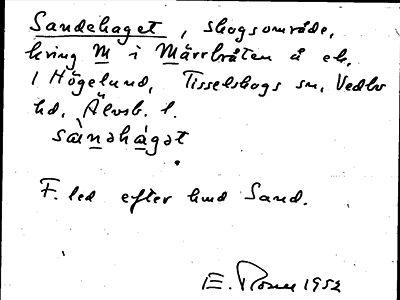 Sandehaget, skogsområde,
kring M i Märrbråten å ek.
1 Högelund, Tisselskogs sn, Vedbo
hd, Älvsb. l.
sànəhágət
F. led efter hmd Sand.
E. Rosen 1952